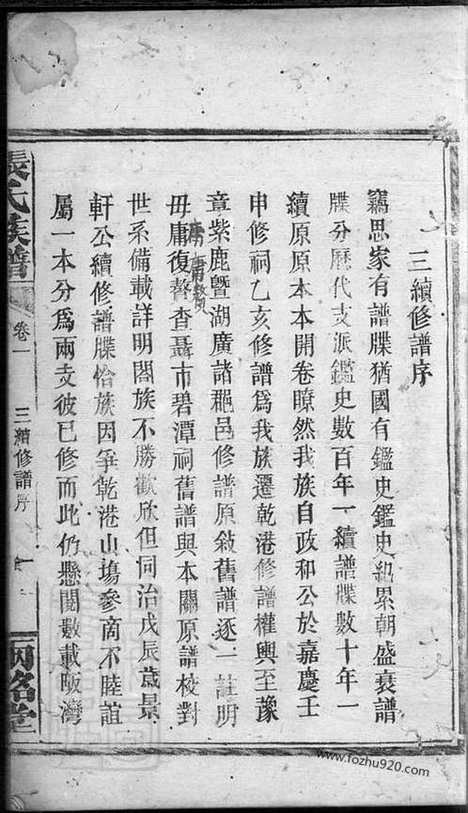 三續修譜序
竊思家有譜牒猶國有鑑史鑑史紀累朝盛衰譜
牒分歷代支派鑑史數百年一續譜牒數十年一
續原原本本開卷瞭然我族自政和公於嘉慶壬
申修祠乙亥修譜爲我族遷乾港修譜權輿至豫
章紫鹿暨湖廣諸郡邑修譜原敘舊譜逐一註明
毋庸復聱查聶市碧潭祠舊譜與本關原譜校對
世系備載詳明閤族不勝歡欣但同治戊辰歲景
軒公續修譜牒恰族因爭乾港山塲參商不睦誼
屬一本分爲兩支彼已修而此仍懸閣數載畈灣
張氏族譜
卷一
三續修譜序
一
銘堂
www.fozhu920.com